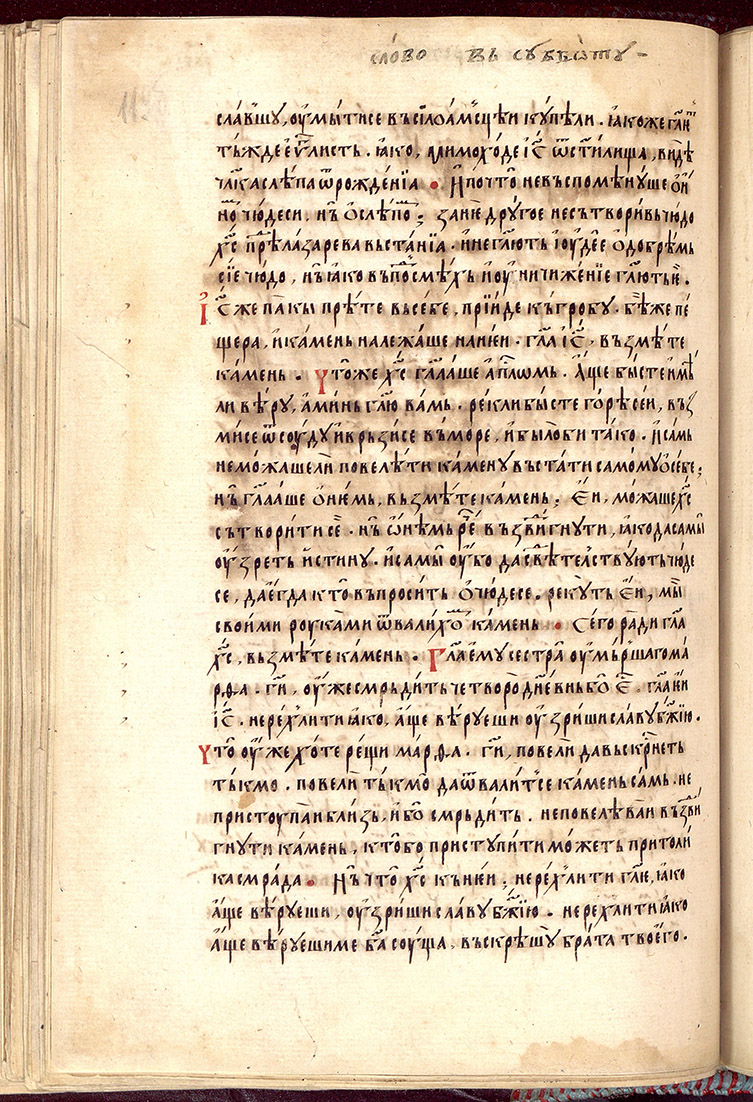 сло́во въ су́ббѡту –
сла́вшу, оу҆мы́тисе въ сїлоа́мсцѣи купѣ́ли . ꙗ҆́коже гл҃ю
ты́жде є҆ѵⷢ҇листь . ꙗ҆́ко , мимоходе і҆с҃ ѿ ст҃и́лища , ви́дѣ
чл҃ка слѣ́па ѿ рожде́нїа . и҆ почто̀ невъспоме́нуше о҆ и҆
но́ⷨ чю́деси , нъ̀ о҆ слѣ́поⷨ ; занѐ дру́гое не сътвори́вь чю́до
хс҃ прѣⷤ ла́зарева въста́нїа . и҆ не гл҃ють і҆оу́дє́є о҆ до́брѣмь
сїѐ чю́до , нъ̀ ꙗ҆́ко въ посмѣ́хъ и҆ оу҆ничиже́нїе гл҃ють сѐ .
І҆с҃ же па́кы прѣ́те въ се́бе , прїи́де къ гро́бу . бѣ́ же пе
щера , и҆ ка́мень належа́ше на нїе́и . гл҃а і҆с҃ , възмѣ́те
ка́мень . что́ же хс҃ гл҃а́аше а҆пⷭ҇лѡмь . а҆́ще бы́сте и҆мѣ́
ли вѣ́ру , а҆ми́нь гл҃ю ва́мь . ре́кли бы́сте го́рѣ се́и , въз
мисе ѿ соу́ду и҆ врьзисе въ мо́ре , и҆ бы́ло би та́ко . и҆ са́мь
не можа́ше ли повелѣ́ти ка́мену въста́ти самому о҆ се́бе ;
нъ̀ гл҃а́аше о҆ не́мь , възмѣ́те ка́мень ; є҆́и , можа́ше хс҃
сътвори́ти сѐ . нъ̀ ѻ҆нѣ́мь ре́ⷱ҇ възⷣви́гнути , ꙗ҆́ко да са́мы
оу҆́зреть и҆́стину . и҆ са́мы оу҆́бо да свѣ́телствують чю́де
се , да є҆гда̀ кто̀ въпро́сить о҆ чю́десе . реку́ть є҆́и , мы̀
свои́ми роука́ми ѿвали́хоⷨ ка́мень . Сего̀ ра́ди гл҃а
хс҃ , възмѣ́те ка́мень . Гл҃а є҆му̀ сестра̀ оу҆мръ́шаго ма́
рѳа . гⷭ҇и , оу҆жѐ смрьди́ть четвородне́внь бо̀ є҆́ⷭ҇ . гл҃а є҆́и
і҆с҃ . не ре́хь ли ти ꙗ҆́ко , а҆́ще вѣ́руеши оу҆́зриши сла́ву бж҃їю .
Что̀ оу҆́же хо́те ре́щи ма́рѳа . гⷭ҇и , повели̏ да въскрⷭ҇неть
ты́кмо . повели̏ ты́кмо да ѿвали́т се ка́мень са́мь . не
приступа́и бли́зь , и҆́бо смрьди́ть . не повелѣва́и възⷣви
гнути ка́мень , кто́ бо приступи́ти мо́жеть при толи́
ка смра́да . Нъ̀ что̀ хс҃ къ нїе́и ; не ре́хь ли ти гл҃ю , ꙗ҆́ко
а҆́ще вѣ́руеши , оу҆́зриши сла́ву бж҃їю . не ре́хь ли ти ꙗ҆́ко
а҆́ще вѣ́руеши ме ба҃ соу́ща , въскрѣшу̀ бра́та твоего̀ .